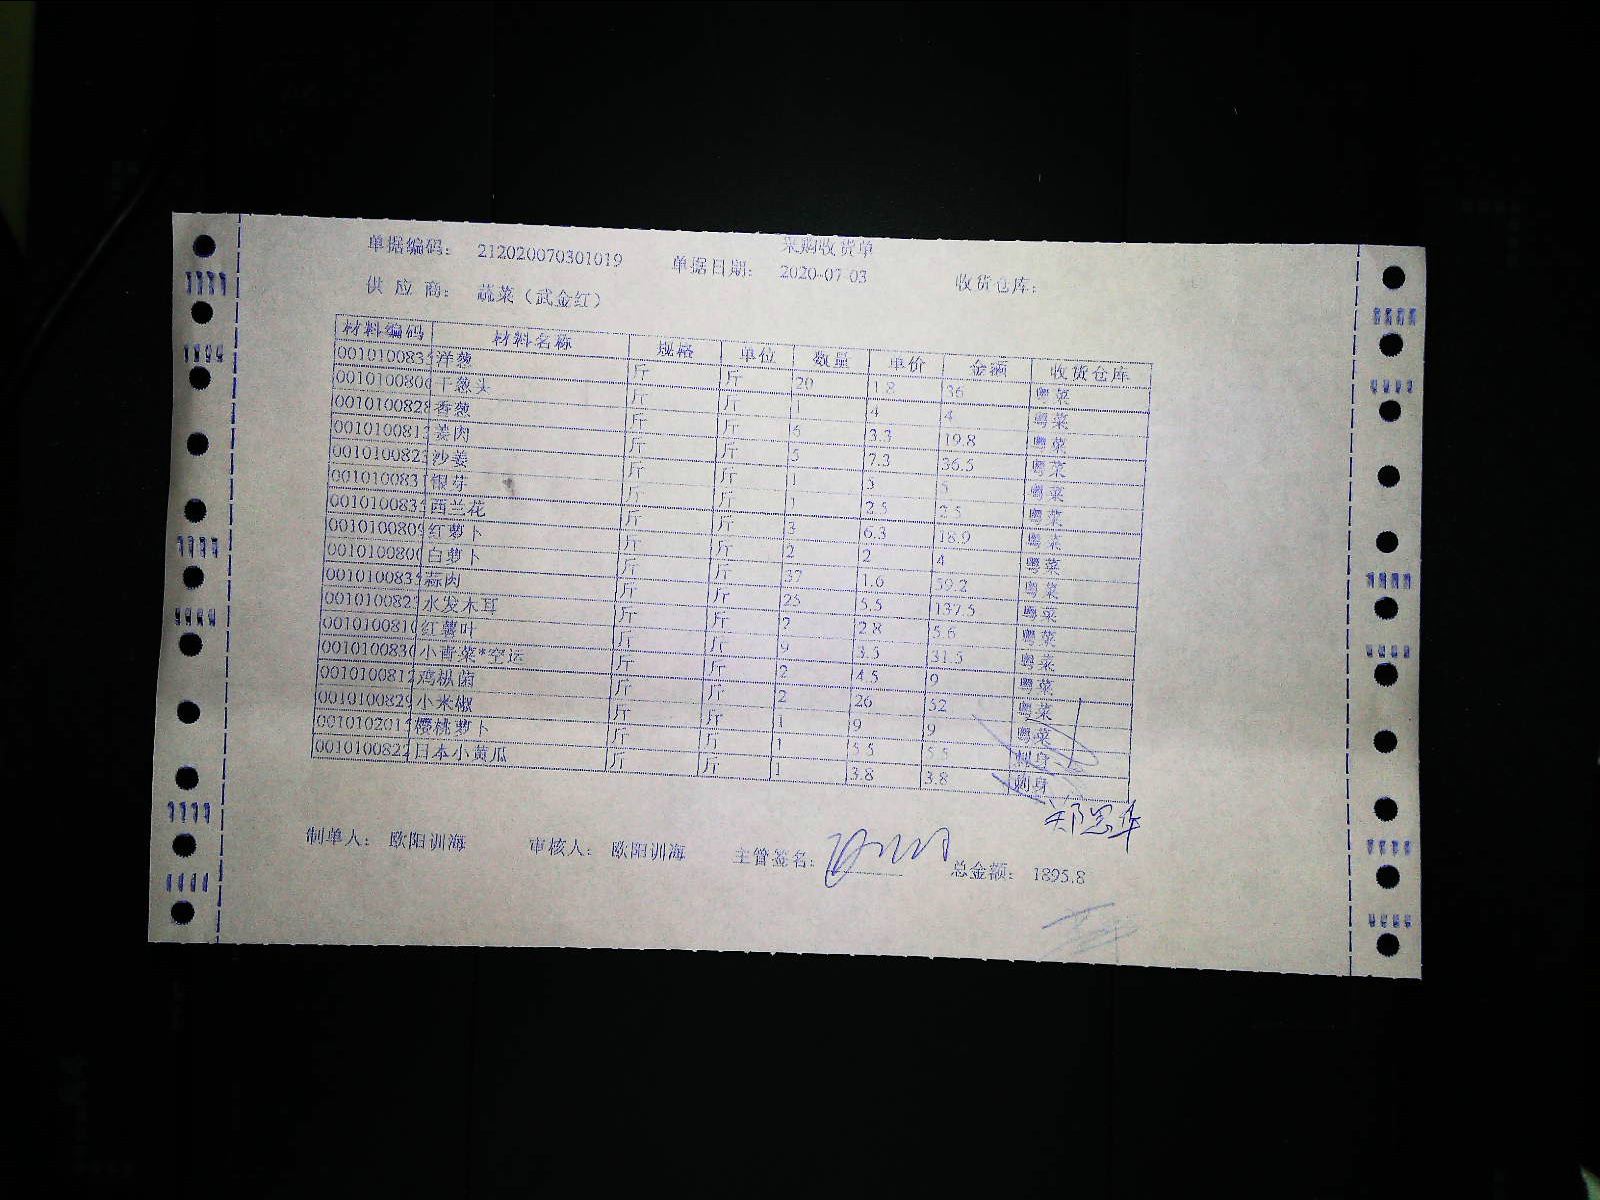 采购收货单
单据编码: 212020070301019 单据日期: 2020-07-03 收货仓库:
供 应 商: 蔬菜（武金红）
材料编码 材料名称 规格 单位 数量 单价 金额 收货仓库
001010083 洋葱 斤 斤 20 1.8 36 粤菜
001010080 干葱头 斤 斤 1 4 4 粤菜
001010082 香葱 斤 斤 6 3.3 19.8 粤菜
001010081 姜肉 斤 斤 5 7.3 36.5 粤菜
001010082 沙姜 斤 斤 1 5 5 粤菜
001010083 银芽 斤 斤 1 2.5 2.5 粤菜
001010083 西兰花 斤 斤 3 6.3 18.9 粤菜
001010080 红萝卜 斤 斤 2 2 4 粤菜
001010080 白萝卜 斤 斤 37 1.6 59.2 粤菜
001010083 蒜肉 斤 斤 25 5.5 137.5 粤菜
001010082 水发木耳 斤 斤 2 2.8 5.6 粤菜
001010081 红薯叶 斤 斤 9 3.5 31.5 粤菜
001010083 小青菜*空运 斤 斤 2 4.5 9 粤菜
001010081 鸡枞菌 斤 斤 2 26 52 粤菜
001010082 小米椒 斤 斤 1 9 9 粤菜
001010201 樱桃萝卜 斤 斤 1 5.5 5.5 刺身
001010082 日本小黄瓜 斤 斤 1 3.8 3.8 刺身
郑思华
制单人: 欧阳训海 审核人: 欧阳训海 主管签名: 总金额: 1895.8